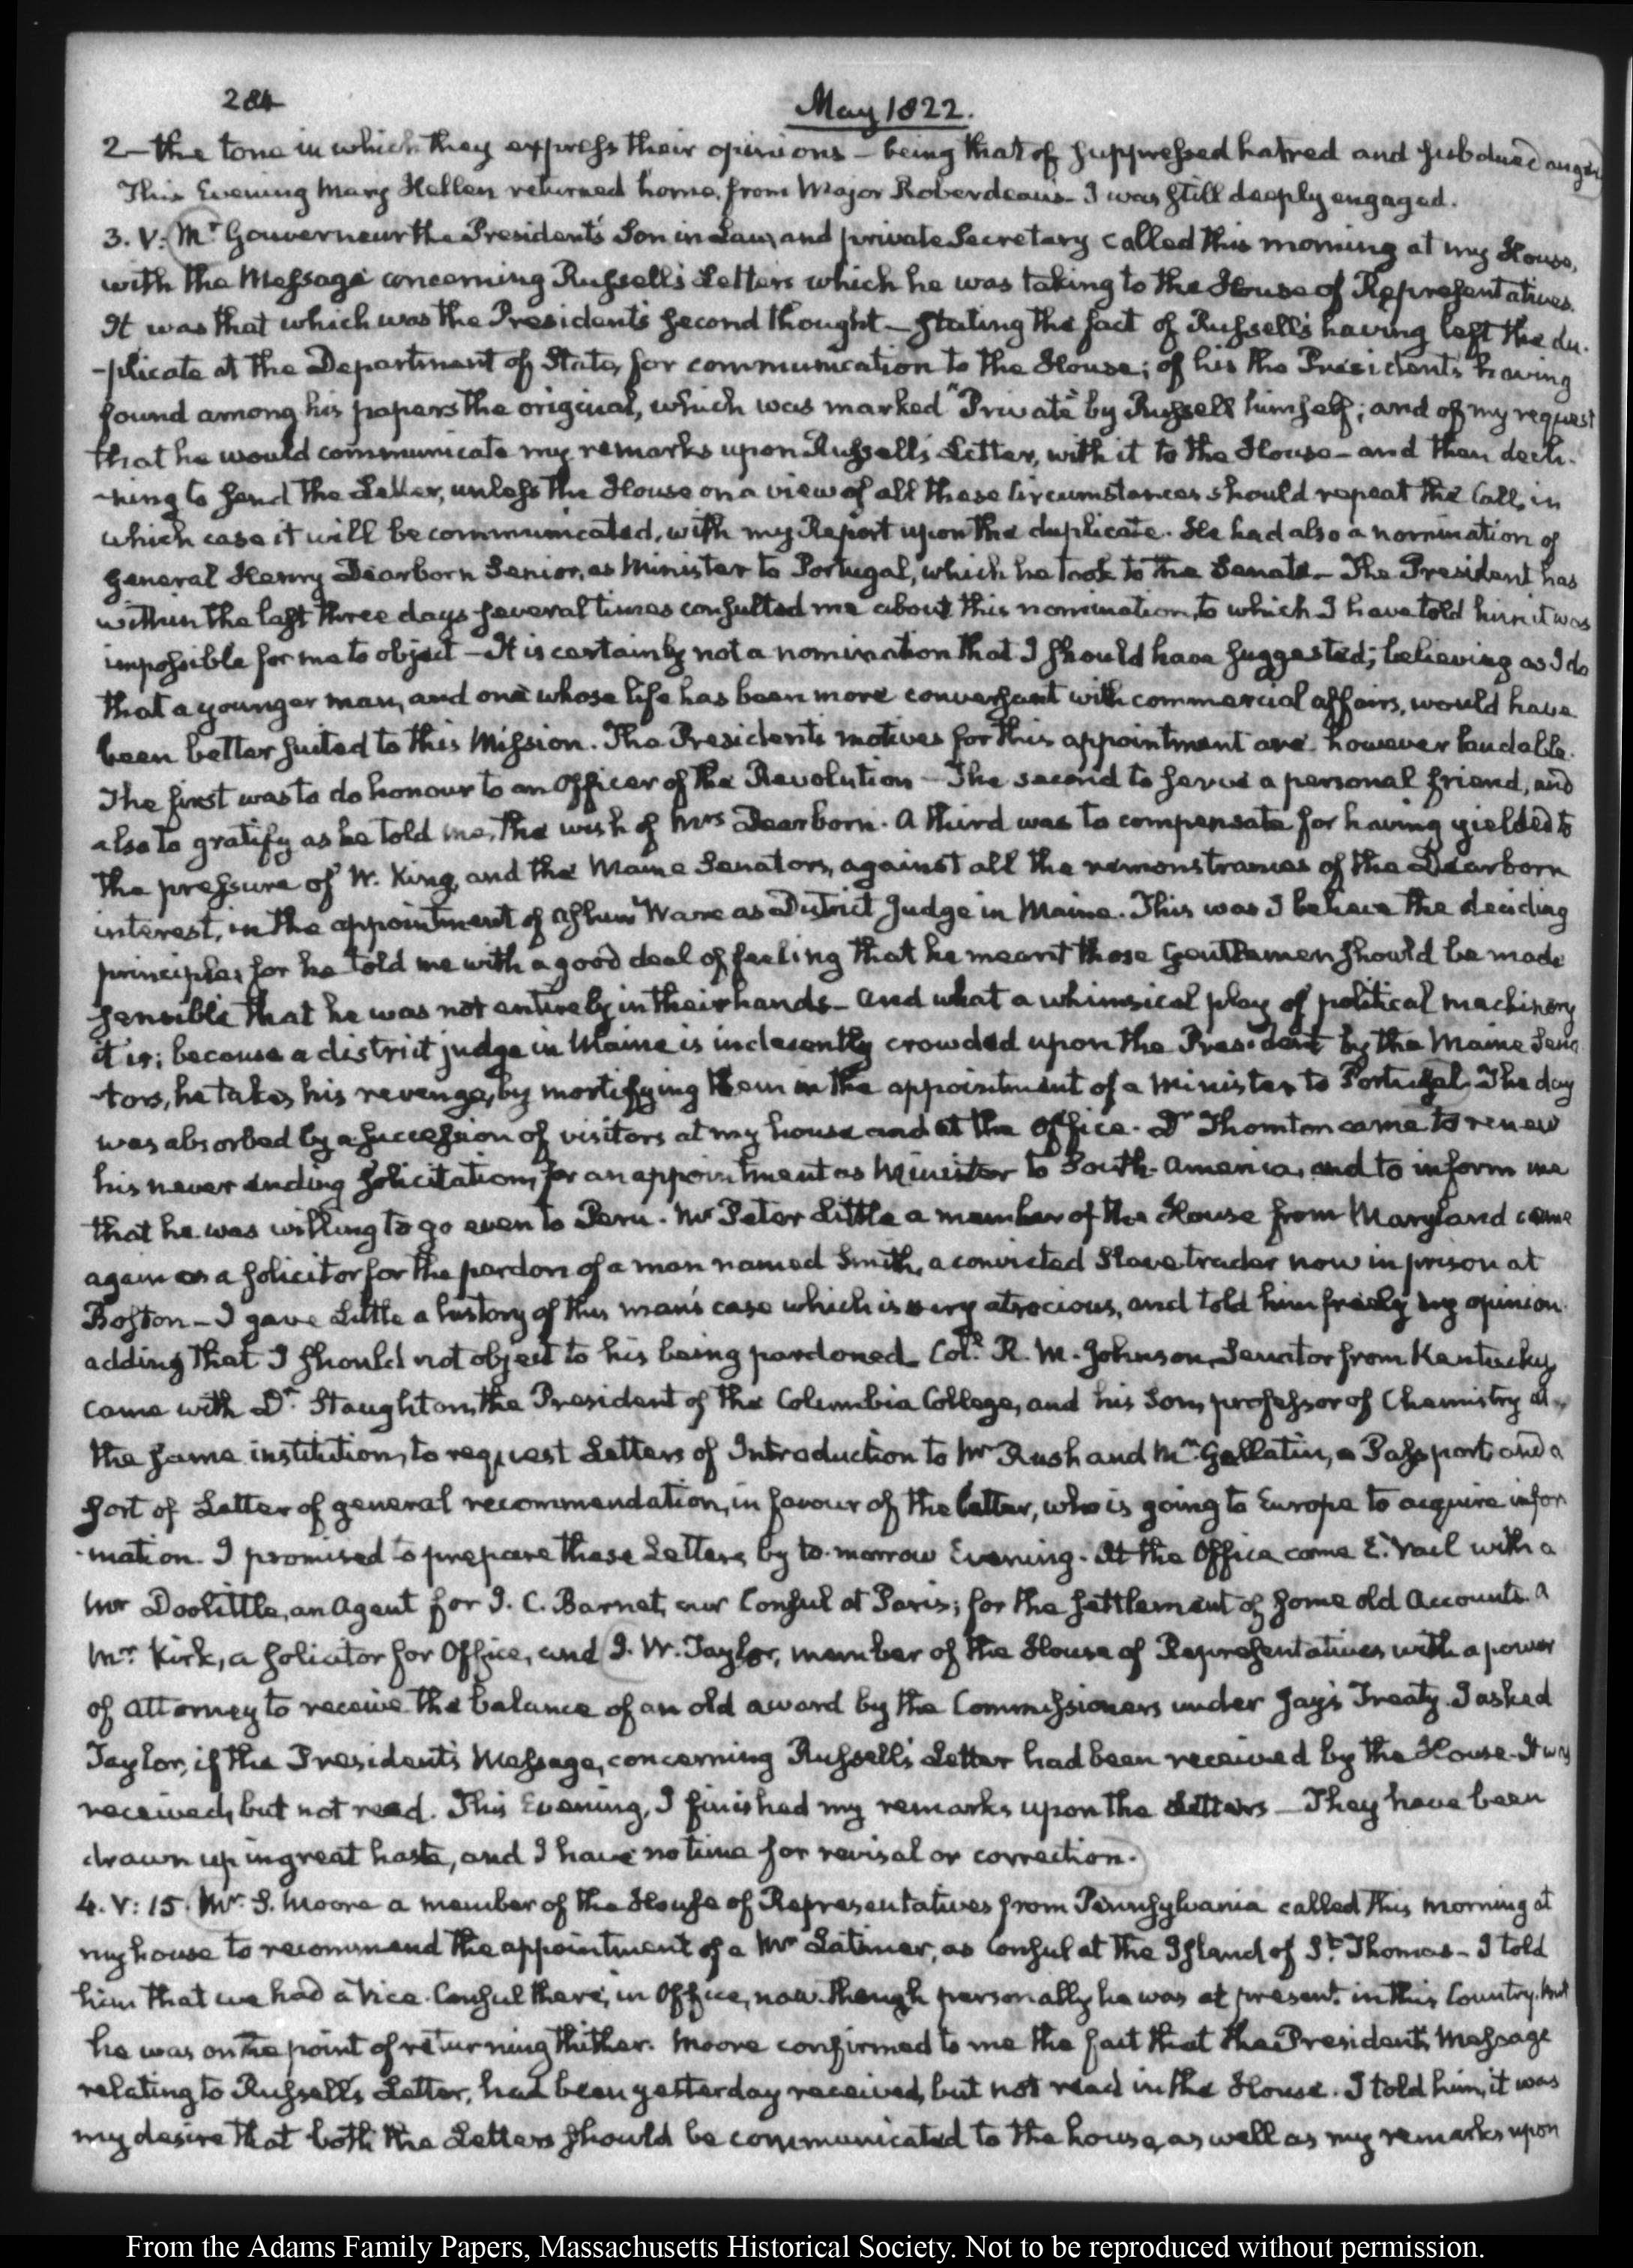 284
May 1822.
2— the tone in which they express their opinions — being that of suppressed hatred and subdued anger
This Evening Mary Hellen returned home, from Major Roberdeau's. I was still deeply engaged.
3. V: Mr Gouverneur the President's Son in Law, and private Secretary called this morning at my House,
with the Message concerning Russell's Letters which he was taking to the House of Representatives.
It was that which was the President's second thought — stating the fact of Russell's having left the du-
-plicate at the Department of State, for communication to the House; of his the President's having
found among his papers the original, which was marked "Private" by Russell himself; and of my request
that he would communicate my remarks upon Russell's Letter, with it to the House — and then decli-
-ning to send the Letter, unless the House on a view of all these circumstances should repeat the Call, in
which case it will be communicated, with my Report upon the duplicate. He had also a nomination of
General Henry Dearborn Senior, as Minister to Portugal, which he took to the Senate — The President has
within the last three days several times consulted me about this nomination, to which I have told him it was
impossible for me to object — It is certainly not a nomination that I should have suggested; believing as I do
that a younger man, and one whose life has been more conversant with commercial affairs, would have
been better suited to this Mission. The President's motives for this appointment are however laudable.
The first was to do honour to an Officer of the Revolution — The second to serve a personal friend, and
also to gratify as he told me, the wish of Mrs Dearborn. A third was to compensate for having yielded to
the pressure of W. King, and the Maine Senators, against all the remonstrances of the Dearborn
interest, in the appointment of Ashur Ware as District Judge in Maine. This was I believe the deciding
principle; for he told me with a good deal of feeling that he meant those Gentlemen should be made
sensible that he was not entirely in their hands — And what a whimsical play of political machinery
it is; because a district judge in Maine is indecently crowded upon the President by the Maine Sena
-tors, he takes his revenge, by mortifying them in the appointment of a Minister to Portugal. The day
was absorbed by a succession of visitors at my house and at the Office. Dr Thornton came to renew
his never ending solicitations for an appointment as Minister to South-America, and to inform me
that he was willing to go even to Peru. Mr Peter Little a member of the House from Maryland came
again as a solicitor for the pardon of a man named Smith, a convicted Slave trader now in prison at
Boston — I gave Little a history of this man's case which is very atrocious, and told him freely my opinion
adding that I should not object to his being pardoned. Coll. R. M. Johnson, Senator from Kentucky,
came with Dr Staughton, the President of the Columbia College, and his Son, professor of Chemistry at
the same institution, to request Letters of Introduction to Mr Rush and Mr Gallatin, a Passport, and a
sort of Letter of general recommendation, in favour of the latter, who is going to Europe to acquire infor
-mation. I promised to prepare these Letters, by to-morrow Evening. At the Office came E. Vail with a
Mr Doolittle, an Agent for I. C. Barnet, our Consul at Paris; for the settlement of some old Accounts. A
Mr Kirk, a solicitor for Office, and J. W. Taylor, member of the House of Representatives with a power
of Attorney to receive the balance of an old award by the Commissioners under Jay's Treaty. I asked
Taylor, if the President's Message, concerning Russell's Letter had been received by the House. It was
received, but not read. This Evening, I finished my remarks upon the Letters — They have been
drawn up in great haste, and I have no time for revisal or correction.
4. V: 15. Mr S. Moore a member of the House of Representatives from Pennsylvania called this morning at
my house to recommend the appointment of a Mr Latimer, as Consul at the Island of St Thomas — I told
him that we had a Vice-Consul there, in Office, now though personally he was at present in this Country. but
he was on the point of returning thither. Moore confirmed to me the fact that the President's Message
relating to Russell's Letter, had been yesterday received, but not read in the House. I told him, it was
my desire that both the Letters should be communicated to the house, as well as my remarks upon
From the Adams Family Papers, Massachusetts Historical Society. Not to be reproduced without permission.